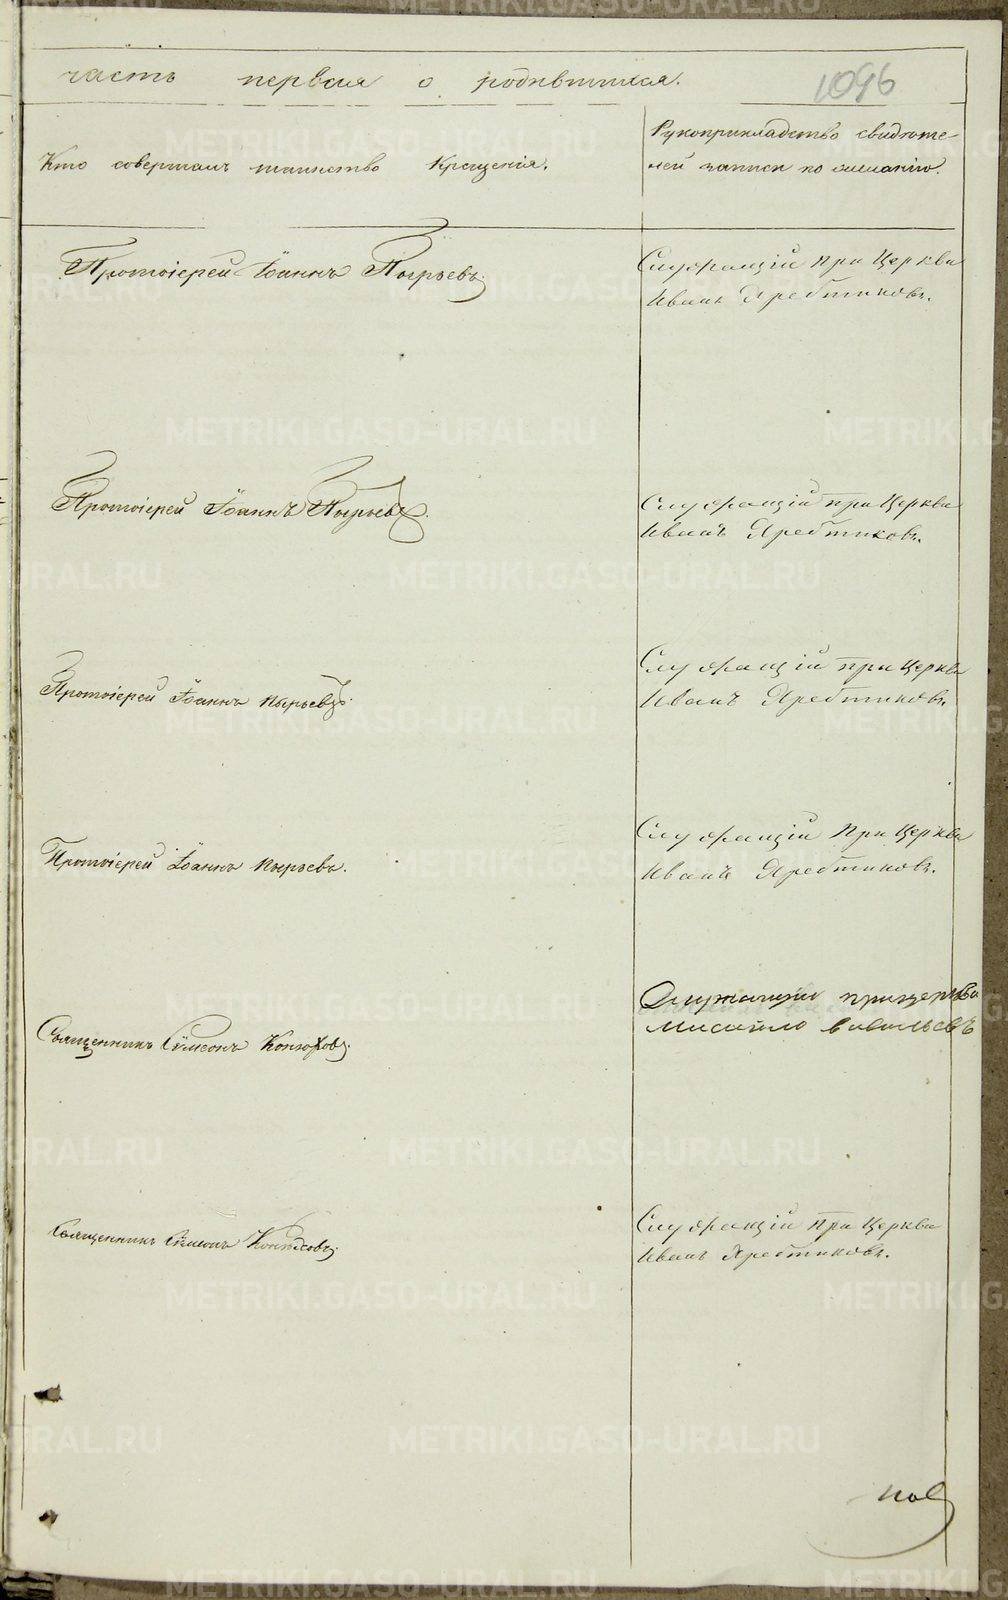 часть первая о родившихся.
1096
Кто совершалъ таинство Крещенія.
Рукоприкладство свидѣте-
лей записи по желанію.
Протоіерей Іоаннъ Пырьевъ.
Служащій При Церкви
Иванъ Яребтиковъ.
Протоіерей Іоаннъ Пырьевъ.
Служащій при Церкви
Иванъ Яребтиковъ.
Протоіерей Іоаннъ Пырьевъ.
Служащій при Церкви
Иванъ Яребтиковъ.
Протоіерей Іоаннъ Пырьевъ.
Служащій При Церкви
Иванъ Яребтиковъ.
Служащій прицеркви
Священникъ Сѵмеонъ Конюховъ.
Священникъ Сѵмеонъ Конюховъ.
Служащій При Церкви
Иванъ Яребтиковъ.
METRIKI.GASO-URAL.RU